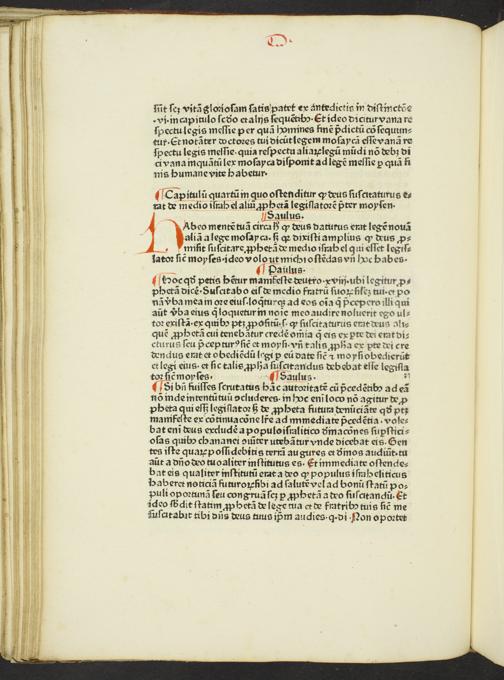 sūt scꝫ vitā gloriosam satis patet ex antedictis in distinctōe
·vi·in capitulo scd̄o et alijs sequētibꝰ. Et ideo dicitur vana re
spectu legis messie per quā homines finē p̄dictū cō sequun-
tur. Et notāter doctores tui dicūt legem mosaycā esse vanā re
spectu legis messie. quia respectu aliaꝝ legū mūdi nō debꝫ di
ci vana inquātū lex mosayca disponit ad legē messie ꝑ quā fi
nis humane vite habetur.
¶Capitulū quartū in quo ostenditur ꝙ deus suscitaturus e-
rat de medio israhel aliū ꝓphetā legislatorē p̄ter moysen.
¶Saulus.
HAbeo mentē tuā circa hꝫ ꝙ deus daturus erat legē nouā
aliā a lege mosayca. sꝫ qꝛ dixisti amplius ꝙ deus ꝓ-
misit suscitare ꝓphetā de medio israhel qui esset legis-
lator sic̄ moyses. ideo volo ut michi ostēdas vn̄ hoc habes.
¶Paulus.
¶Hoc qd̄ petis hētur manifeste deutro·xviii·vbi legitur ꝓ-
phetā dicē. Suscitabo eis de medio fratrū suoꝝ silēꝫ tui. et po
nā v̄ba mea in ore eius. loqtꝰꝙ ad eos oīa q̄ p̄cepero illi qui
aūt v̄ba eius q̄ loquetur in noīe meo audire noluerit ego ul-
tor existā. ex quibꝰ ptꝫ ꝓpositū. s. ꝙ suscitaturus erat deus ali-
quē ꝓphetā cui tenebātur credē omīa q̄ eis ex pte dei erat di-
cturus seu p̄cepturꝰ sic̄ et moysi. vn̄ talis ꝓpha ex pte dei cre
dendus erat et obediēdū legi ꝑ eū date sic̄ ⁊ moysi obedierūt
et legi eius. et sic talis ꝓpha suscitandus debebat esse legisla
tor sic̄ moyses.
¶Saulus.
¶Si bn̄ fuisses scrutatus hāc autoritatē cū p̄cedētibꝰ ad eā
nō inde intentū tuū ꝯcluderes. in hoc eni loco nō agitur de ꝓ-
pheta qui esset legislator sꝫ de ꝓpheta futura denūciāte qd̄ ptꝫ
manifeste ex cōtinuacōne lr̄e ad immediate p̄cedētia. vole-
bat eni deus excludē a populo israhelitico diuinacōnes supstici-
osas quibꝰ chananei oīuter utebātur vnde dicebat eis. Gen
tes iste quaꝝ possidebitis terrā augures et diuīos audiūt. tu
aūt a dn̄o deo tuo aliter institutus es. Et immediate ostende-
bat eis qualiter institutū erat a deo ꝙ populus israheliticus
haberet noticiā futuroꝝ sibi ad salutē vel ad bonū statū po-
puli oportunā seu congruā scꝫ ꝑ ꝓphetā a deo suscitandū. Et
ideo sb̄dit statim ꝓphetā de gente tua et de fratribꝰ tuis sic̄ me
suscitabit tibi dn̄s deus tuus ipm̄ audies. q. di. Non oportet